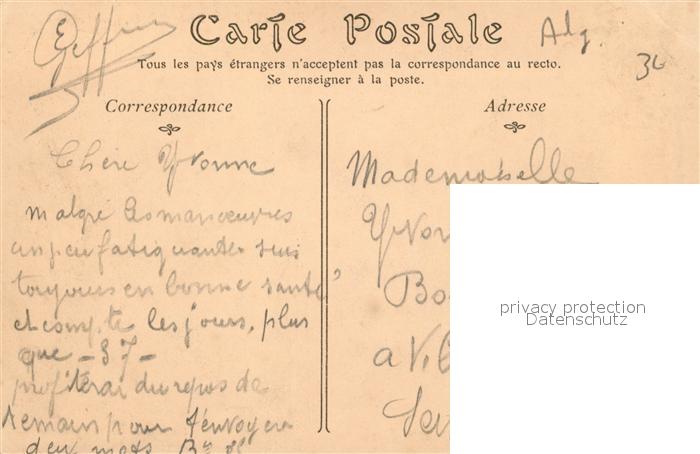 Carte Postale
Adg.
36
Tous les pays étrangers n'acceptent pas la correspondance au recto.
Se renseigner à la poste.
Correspondance
Adresse
Chère Yvonne
malgré les manoeuvres
un peu fatiguantes suis
toujours en bonne santé
et compte les jours, plus
que - 37 -
profiterai du repos de
demain pour t'envoyer
deux mots.
Mademoiselle
Yvon
Bo
a Vil
privacy protection
Datenschutz